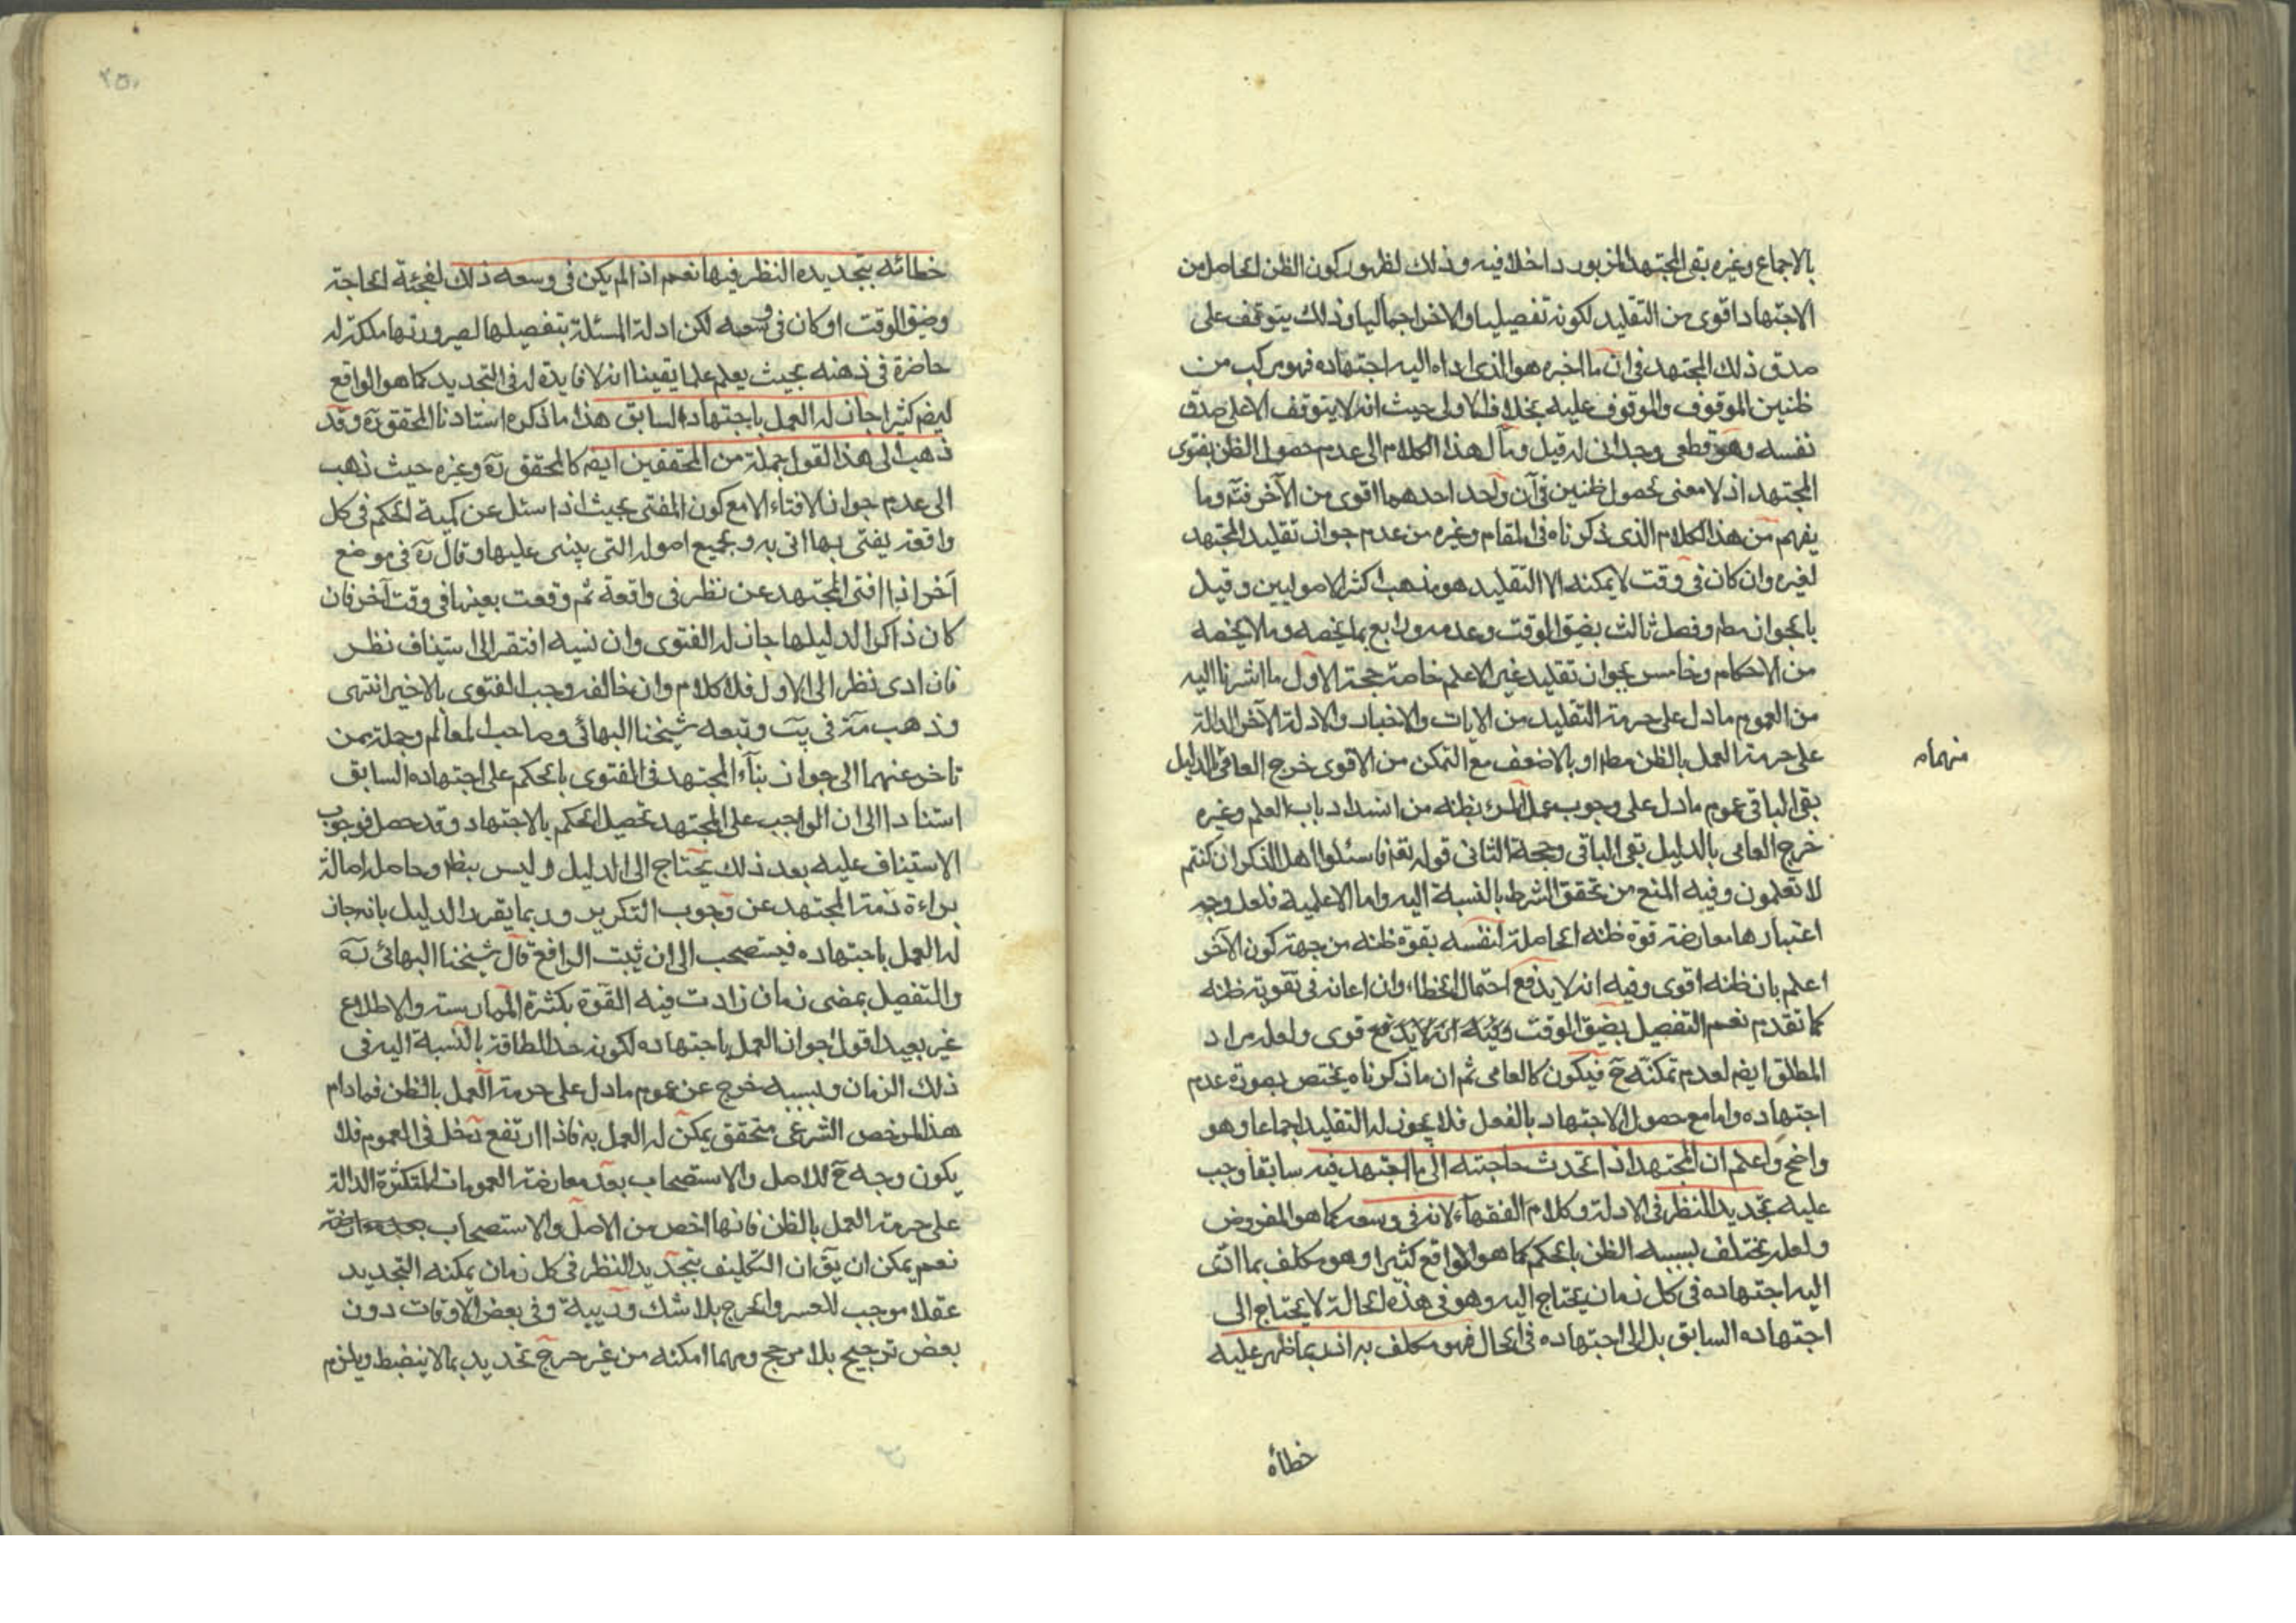 بالاجماع وغيره بقى المجتهد المزبور داخلا فيه وذلك لظهور كون الظن الحاصل من
الاجتهاد اقوى من التقليد لكونه تفصيليا والاخر اجماليا وذلك يتوقف على
صدق ذلك المجتهد فى ان ما اخبره هو الذى اداه اليه اجتهاده فهو مركب من
ظنين الموقوف والموقوف عليه بخلاف الاولى حيث انه لا يتوقف الا على صدق
نفسه وهو قطعى وجدانى له قيل ومآل هذا الكلام الى عدم حصول الظن بفتوى
المجتهد اذ لا معنى لحصول ظنين فى آن واحد احدهما اقوى من الآخر فته وما
يفهم من هذا الكلام الذى ذكرناه فى المقام وغيره من عدم جواز تقليد المجتهد
لغيره وان كان فى وقت لا يمكنه الا التقليد هو مذهب اكثر الاصوليين وقيل
بالجواز مطر وفصل ثالث بضيق الوقت وعدمه ورابع بما يخصه وما لا يخصه
من الاحكام وخامس بجواز تقليد غير الاعلم خاصة حجة الاول ما اشرنا اليه
من العموم ما دل على حرمة التقليد من الايات والاخبار والادلة الآخر الدالة
على حرمة العمل بالظن مطر او بالاضعف مع التمكن من الاقوى خرج العامى بالدليل
منهماه
بقى الباقى عموم ما دل على وجوب عمل المرء بظنه من انسداد باب العلم وغيره
خرج العامى بالدليل بقى الباقى وحجة الثانى قوله تعه فاسئلوا اهل الذكر ان كنتم
لا تعلمون وفيه المنع من تحقق الشرط بالنسبة اليه واما الاعلمية فلعل وجه
اعتبارها معارضة قوة ظنه الحاصلة لنفسه بقوة ظنه من جهة كون الآخر
اعلم بان ظنه اقوى وفيه انه لا يدفع احتمال الخطاء وان اعانه فى تقوية ظنه
كما تقدم نعم التفصيل بضيق الوقت وفيه انه لا يدفع قوى ولعله مراد
المطلق ايضم لعدم تمكنه ح فيكون كالعامى ثم ان ما ذكرناه يختص بصورة عدم
اجتهاده واما مع حصول الاجتهاد بالفعل فلا يجوز له التقليد اجماعا وهو
واضح واعلم ان المجتهد اذا تحدث حاجته الى ما اجتهد فيه سابقا وجب
عليه تجديد النظر فى الادلة وكلام الفقهاء لانه فى وسعه كما هو المفروض
ولعله يختلف بسببه الظن بالحكم كما هو الواقع كثيرا وهو مكلف بما ادى
اليه اجتهاده فى كل زمان يحتاج اليه وهو فى هذه الحالة لا يحتاج الى
اجتهاده السابق بل الى اجتهاده فى الحال فهو مكلف به اذ ربما ظهر عليه
خطأه
٢٥٠
خطائه بتجديده النظر فيها نعم اذا لم يكن فى وسعه ذلك لفجئة الحاجة
وضيق الوقت او كان فى وسعه لكن ادلة المسئلة بتفصيلها لصيرورتها ملكة له
حاضرة فى ذهنه بحيث يعلم علما يقينا انه لا فايدة له فى التجديد كما هو الواقع
ايضم كثيرا جاز له العمل باجتهاده السابق هذا ما ذكره استادنا المحقق ره وقد
ذهب الى هذا القول جملة من المحققين ايضم كالمحقق ره وغيره حيث ذهب
الى عدم جواز الافتاء الا مع كون المفتى بحيث اذا سئل عن لمية الحكم فى كل
واقعة يفتى بها اتى به وبجميع اصوله التى يبنى عليها وقال ره فى موضع
آخر اذا افتى المجتهد عن نظر فى واقعة ثم وقعت بعينها فى وقت آخر فان
كان ذاكرا لدليلها جاز له الفتوى وان نسيه افتقر الى استيناف نظر
فان ادى نظر الى الاول فلا كلام وان خالفه وجب الفتوى بالاخير انتهى
وذهب مة فى يب وتبعه شيخنا البهائى وصاحب المعالم وجملة ممن
تاخر عنهما الى جواز بناء المجتهد فى الفتوى بالحكم على اجتهاده السابق
استنادا الى ان الواجب على المجتهد تحصيل الحكم بالاجتهاد وقد حصل فوجوب
الاستيناف عليه بعد ذلك يحتاج الى الدليل وليس بظم وحاصله اصالة
براءة ذمة المجتهد عن وجوب التكرير وربما يقرر الدليل بانه جاز
له العمل باجتهاده فيستصحب الى ان يثبت الرافع قال شيخنا البهائى ره
والتفصيل بمضى زمان زادت فيه القوة بكثرة الممارسة والاطلاع
غير بعيد اقول جواز العمل باجتهاده لكونه حد الطاقة بالنسبة اليه فى
ذلك الزمان وبسببه خرج عن عموم ما دل على حرمة العمل بالظن فما دام
هذا المرخص الشرعى متحقق يمكن له العمل به فاذا ارتفع دخل فى العموم فلا
يكون وجه ح للاصل والاستصحاب بعد معارضة العمومات المتكثرة الدالة
على حرمة العمل بالظن فانها اخص من الاصل والاستصحاب
نعم يمكن ان يق ان التكليف بتجديد النظر فى كل زمان يمكنه التجديد
عقلا موجب للعسر والحرج بلا شك وريبة وفى بعض الاوقات دون
بعض ترجيح بلا مرجح ومهما امكنه من غير حرج تحديد بما لا ينضبط ويلزم